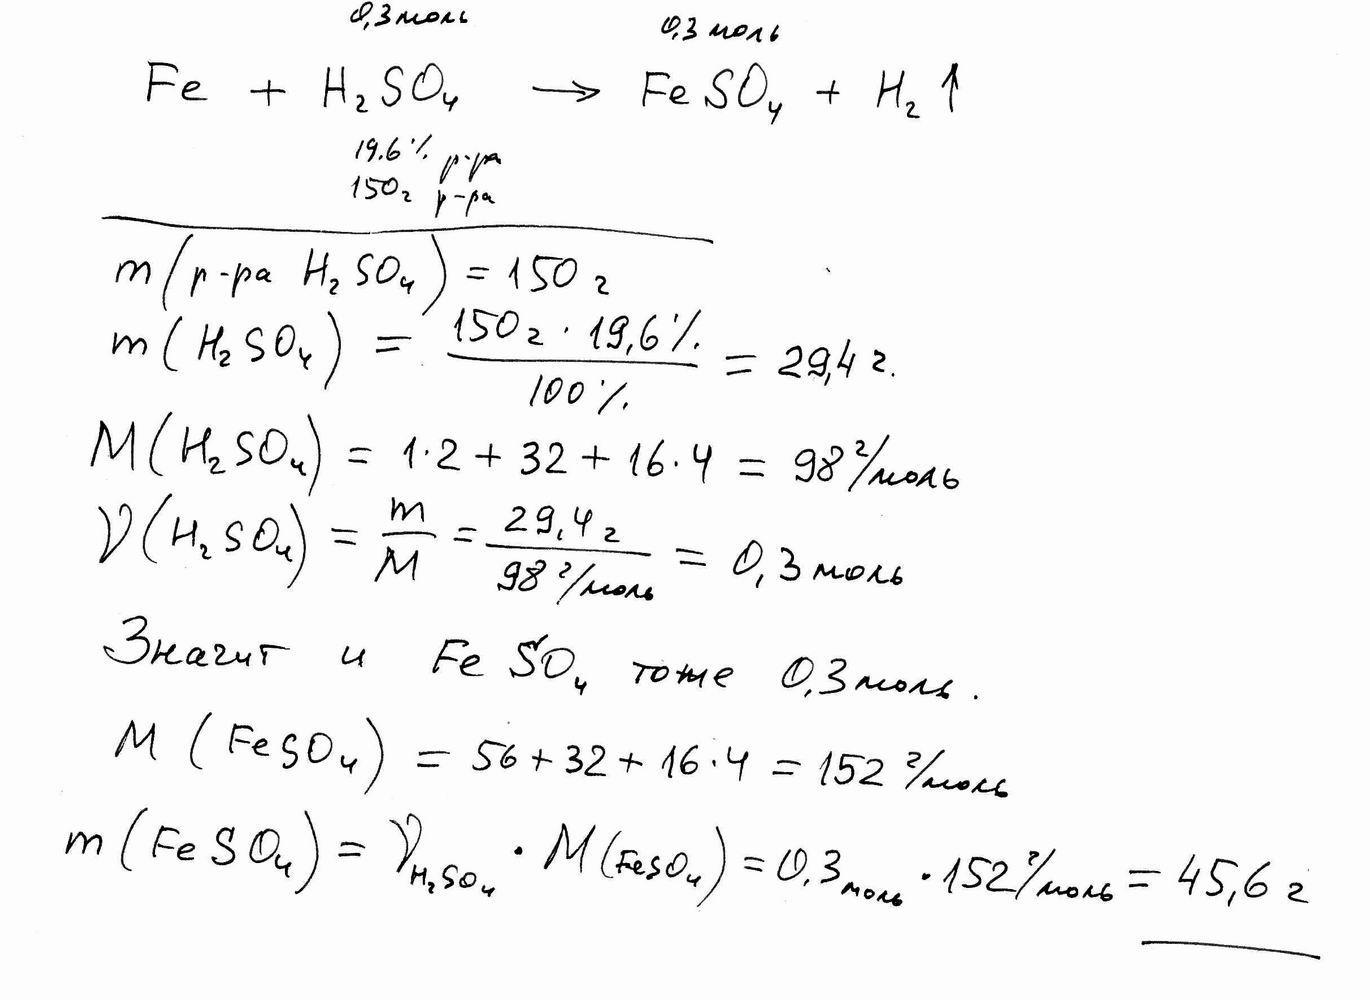 0,3 моль 0,3 моль
Fe + H₂SO₄ → FeSO₄ + H₂ ↑
19.6% р-ра
150г р-ра
m(р-ра H₂SO₄) = 150 г
m(H₂SO₄) = 150г · 19,6% / 100% = 29,4 г.
M(H₂SO₄) = 1·2 + 32 + 16·4 = 98 г/моль
ν(H₂SO₄) = m/M = 29,4 г / 98 г/моль = 0,3 моль
Значит и FeSO₄ тоже 0,3 моль.
M(FeSO₄) = 56 + 32 + 16·4 = 152 г/моль
m(FeSO₄) = ν H₂SO₄ · M(FeSO₄) = 0,3 моль · 152 г/моль = 45,6 г